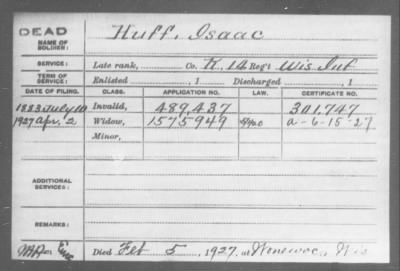 DEAD
NAME OF SOLDIER: Huff, Isaac
SERVICE: Late rank, Co. K, 14 Reg't Wis. Inf
TERM OF SERVICE: Enlisted , 1 Discharged , 1
DATE OF FILING. CLASS. APPLICATION NO. LAW. CERTIFICATE NO.
1883 July 10 Invalid, 489,437 301,747
1927 Apr. 2 Widow, 1575949 a-6-15-27
Minor,
ADDITIONAL SERVICES:
REMARKS:
Died Feb 5, 1927, at Wonewoc, Wis